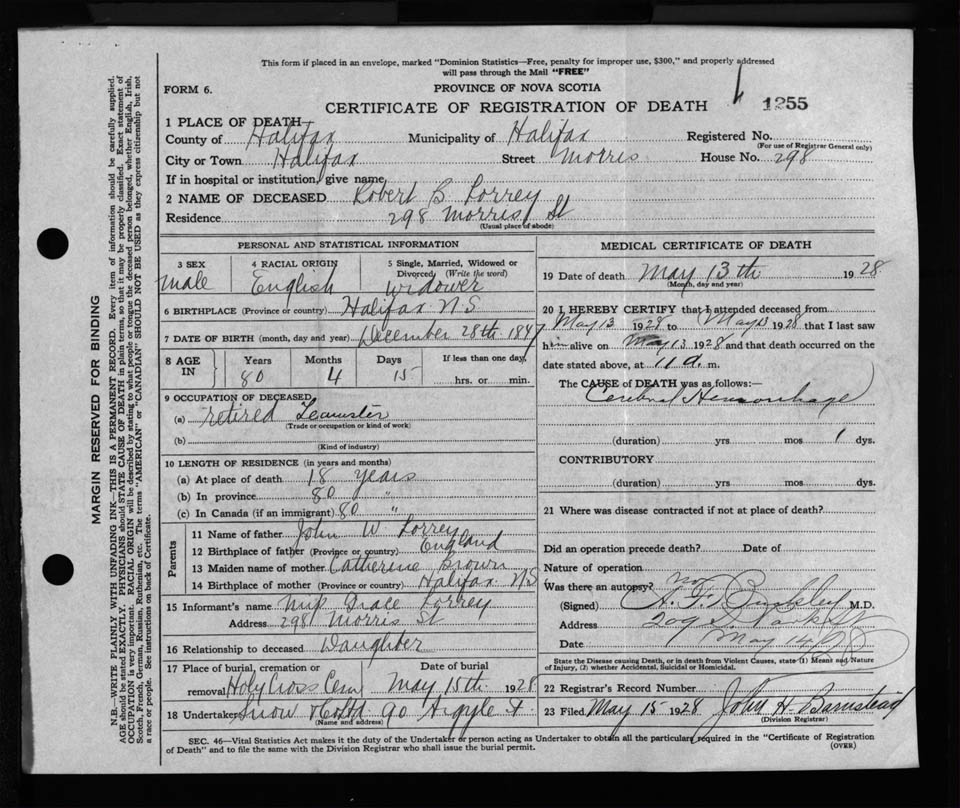 This form if placed in an envelope, marked "Dominion Statistics—Free, penalty for improper use, $300," and properly addressed
will pass through the Mail "FREE"
FORM 6.
PROVINCE OF NOVA SCOTIA
CERTIFICATE OF REGISTRATION OF DEATH
1255
1 PLACE OF DEATH
County of Halifax Municipality of Halifax Registered No.
(For use of Registrar General only)
City or Town Halifax Street Morris House No. 298
If in hospital or institution, give name
2 NAME OF DECEASED Robert B. Torrey
Residence 298 Morris St
(Usual place of abode)
MARGIN RESERVED FOR BINDING
N.B.—WRITE PLAINLY WITH UNFADING INK—THIS IS A PERMANENT RECORD. Every item of information should be carefully supplied.
AGE should be stated EXACTLY. PHYSICIANS should STATE CAUSE OF DEATH in plain terms, so that it may be properly classified. Exact statement of
OCCUPATION is very important. RACIAL ORIGIN will be described by stating to what people or tongue the deceased person belonged, whether English, Irish,
Scotch, French, German, Russian, Ruthenian, etc. The terms "AMERICAN" or "CANADIAN" SHOULD NOT BE USED as they express citizenship but not
a race or people. See instructions on back of Certificate.
PERSONAL AND STATISTICAL INFORMATION
3 SEX 4 RACIAL ORIGIN 5 Single, Married, Widowed or
Divorced (Write the word)
Male English Widower
6 BIRTHPLACE (Province or country) Halifax N.S
7 DATE OF BIRTH (month, day and year) December 28th 1847
8 AGE IN Years Months Days If less than one day,
80 4 15 hrs. or min.
9 OCCUPATION OF DECEASED
(a) retired Teamster
(Trade or occupation or kind of work)
(b)
(Kind of industry)
10 LENGTH OF RESIDENCE (in years and months)
(a) At place of death 18 years
(b) In province 80 "
(c) In Canada (if an immigrant) 80 "
Parents
11 Name of father John W Torrey
12 Birthplace of father (Province or country) England
13 Maiden name of mother Catherine Brown
14 Birthplace of mother (Province or country) Halifax N.S
15 Informant's name Miss Grace Torrey
Address 298 Morris St
16 Relationship to deceased Daughter
17 Place of burial, cremation or Date of burial
removal Holy Cross Cem May 15th 1928
18 Undertaker Snow & Co Ltd 90 Argyle St
(Name and address)
MEDICAL CERTIFICATE OF DEATH
19 Date of death May 13th 1928
(Month, day and year)
20 I HEREBY CERTIFY that I attended deceased from
May 13 1928 to May 13 1928 that I last saw
him alive on May 13 1928 and that death occurred on the
date stated above, at 11 a. m.
The CAUSE of DEATH was as follows:—
Cerebral Hemorrhage
(duration) yrs mos 1 dys.
CONTRIBUTORY
(duration) yrs mos dys.
21 Where was disease contracted if not at place of death?
Did an operation precede death? Date of
Nature of operation
Was there an autopsy? no
(Signed) M.D.
Address 209 S. Park St
Date May 14/28
State the Disease causing Death, or in death from Violent Causes, state (1) Means and Nature
of Injury, (2) whether Accidental, Suicidal or Homicidal.
22 Registrar's Record Number
23 Filed May 15 1928 John H. Barnstead
(Division Registrar)
SEC. 46—Vital Statistics Act makes it the duty of the Undertaker or person acting as Undertaker to obtain all the particulars required in the "Certificate of Registration
of Death" and to file the same with the Division Registrar who shall issue the burial permit.
(OVER)